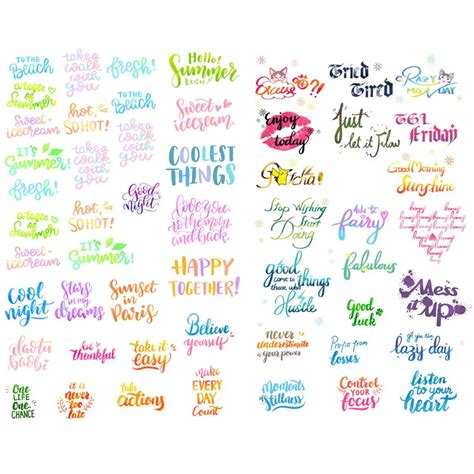 TO THE
BEACH
take a
walk
with
you
fresh!
Hello!
Summer
a taste
of
Summer
hot,
SO HOT!
TO THE
BEACH
Sweet
icecream
Sweet
icecream
take a
walk
with
you
take a
walk
with
you
COOLEST
THINGS
IT'S
Summer!
fresh!
Good
night
a taste
of
Summer
hot,
SO HOT!
love you
to the moon
and back
Sweet
icecream
IT'S
Summer!
HAPPY
TOGETHER!
Cool
night
Stars
in my
dreams
Sunset
in
Paris
Believe
yourself
be
thankful
take it
easy
ONE
LIFE
ONE
CHANCE
it is
never
too
late
take
actions
MAKE
EVERY
DAY
Count
Excuse
?!
Tried
Tired
CRAZY
MONDAY
Enjoy
today
Just
let it flow
TGI
Friday
Gotcha!
Good Morning
Sunshine
Stop Wishing
Start
Doing
fairy
good
things
come to
those who
Hustle
fabulous
Mess
it up
Good
luck
never
underestimate
your power
Profit from
losses
lazy day
Moments
of
Stillness
Control
YOUR
FOCUS
listen to
your
heart